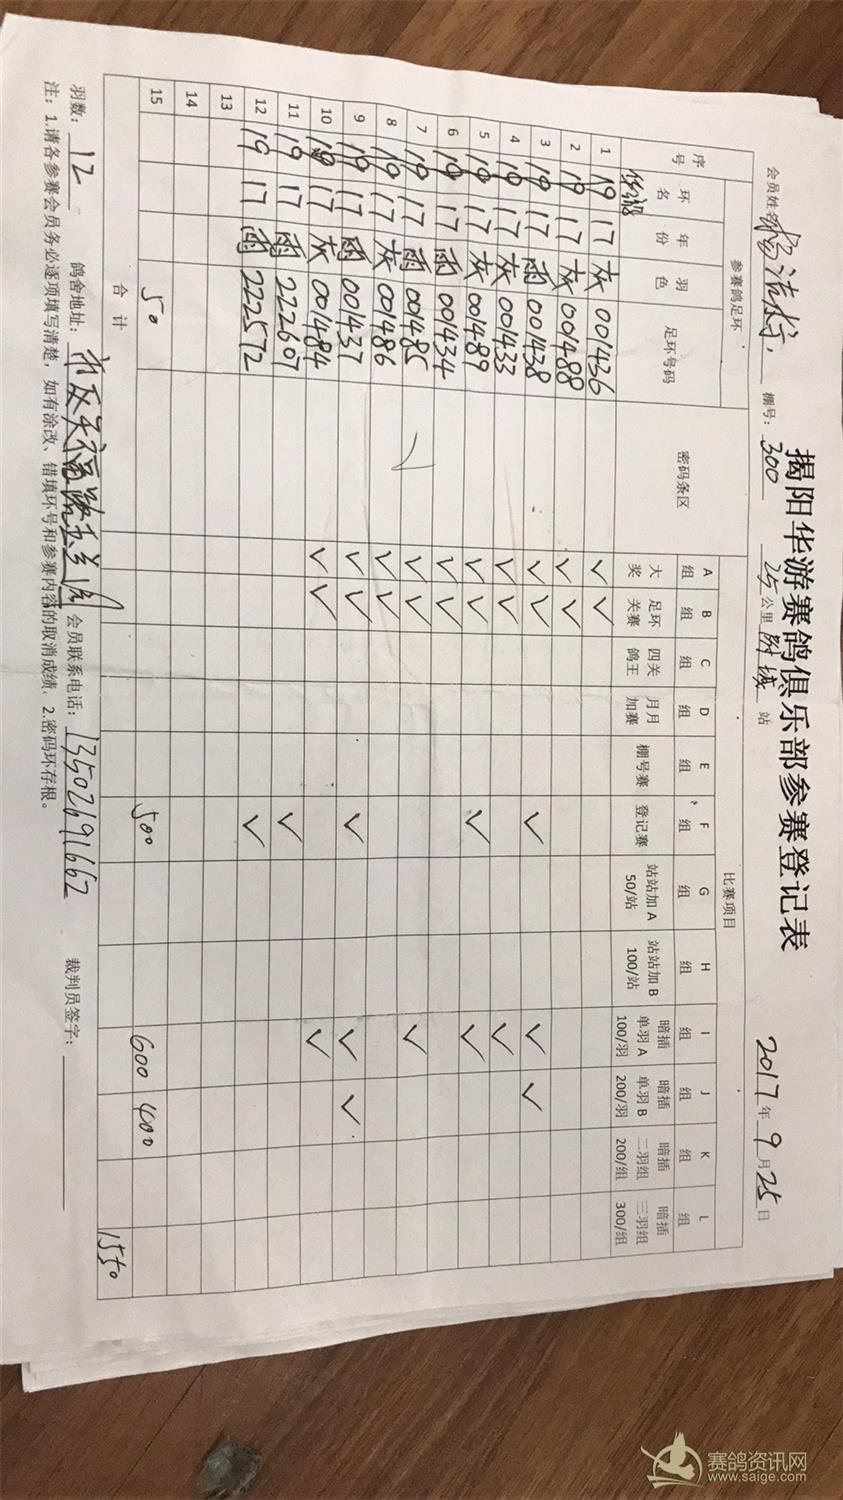 揭阳华游赛鸽俱乐部参赛登记表
会员姓名 杨 棚号: 300 25 公里 附城 站 2017 年 9 月 25 日
序号 参赛鸽足环 密码条区 比赛项目
环名 年份 羽色 足环号码 A组 B组 C组 D组 E组 F组 G组 H组 I组 J组 K组 L组
大奖 足环关赛 四关鸽王 月月加赛 棚号赛 登记赛 站站加A 50/站 站站加B 100/站 暗插单羽A 100/羽 暗插单羽B 200/羽 暗插二羽组 200/组 暗插三羽组 300/组
1 19 17 灰 001436 ✓ ✓
2 19 17 灰 001488 ✓ ✓
3 19 17 雨 001438 ✓ ✓ ✓ ✓ ✓
4 19 17 灰 001433 ✓ ✓ ✓
5 19 17 灰 001489 ✓ ✓ ✓ ✓
6 19 17 雨 001434 ✓ ✓
7 19 17 雨 001485 ✓ ✓ ✓
8 19 17 灰 001486 ✓ ✓
9 19 17 雨 001437 ✓ ✓ ✓ ✓ ✓
10 19 17 灰 001484 ✓ ✓ ✓
11 19 17 雨 222607 ✓
12 19 17 雨 222572 ✓
13
14
15 50 500 600 400
合计 1550
羽数: 12 鸽舍地址: 会员联系电话: 13502691662 裁判员签字:
注: 1.请各参赛会员务必逐项填写清楚, 如有涂改、错填环号和参赛内容的取消成绩. 2.密码环存根。
赛鸽资讯网
www.saige.com